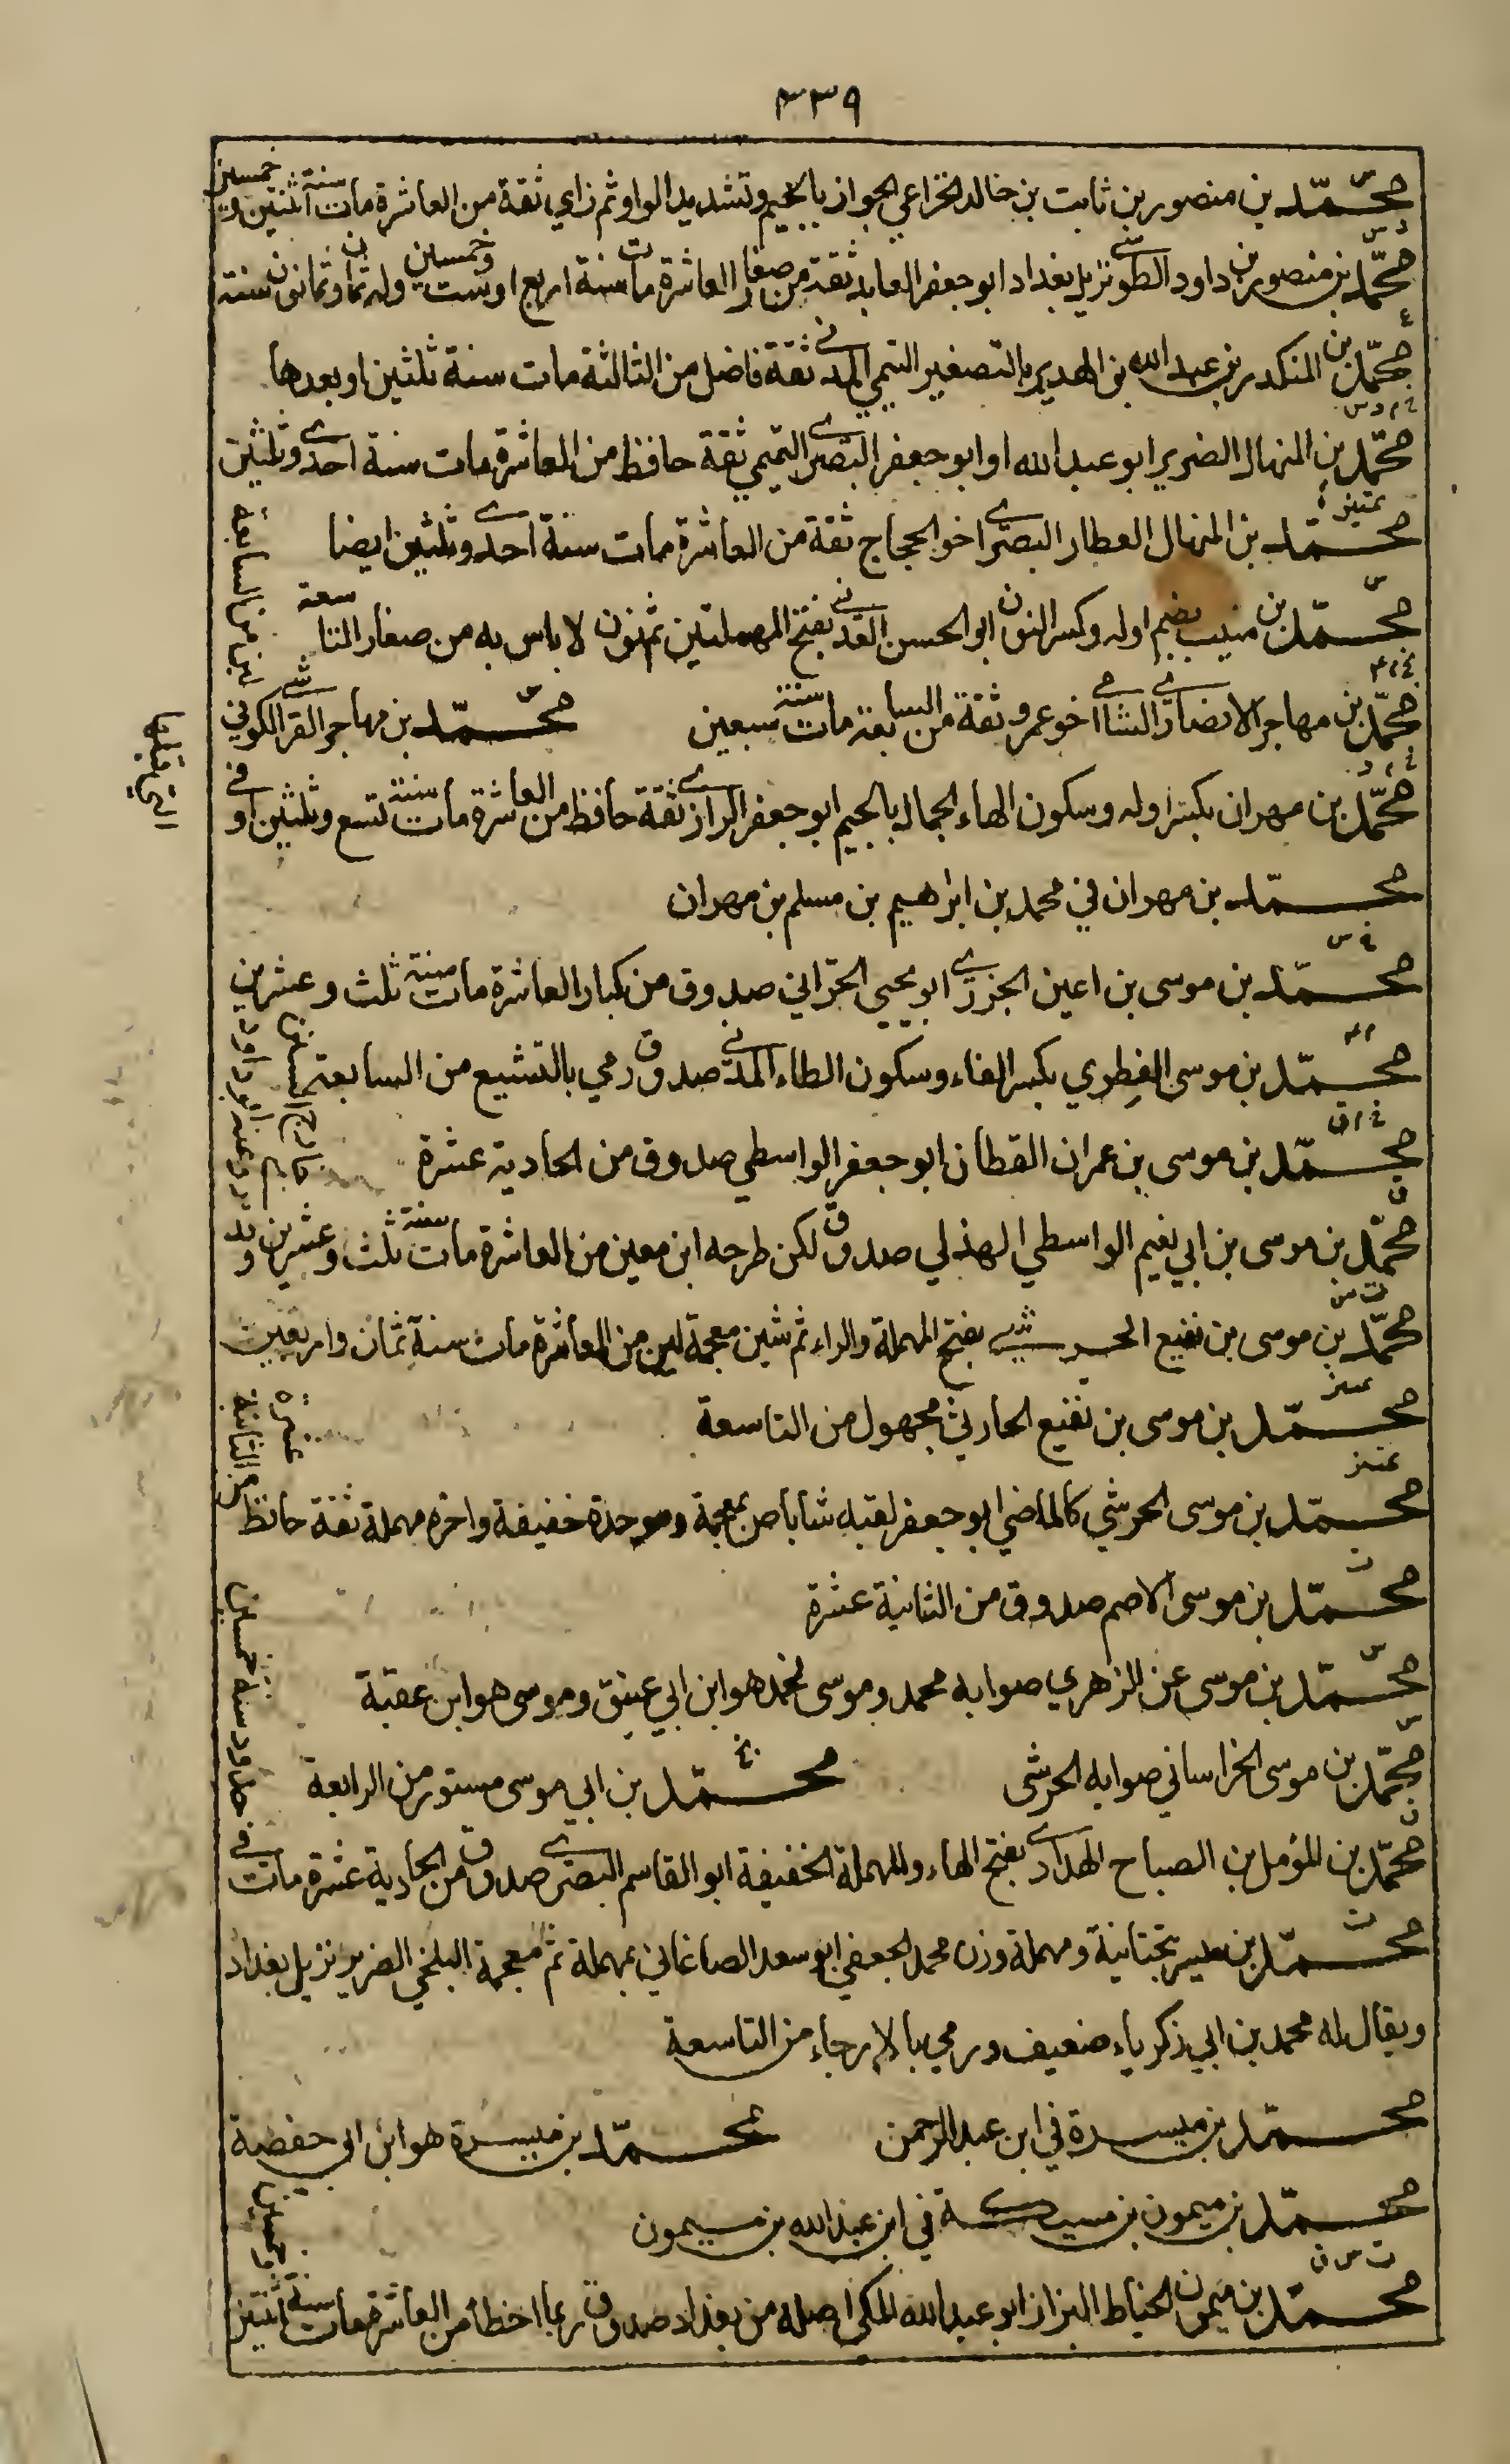 ٣٣٩
س
محمد بن منصور بن ثابت بن خالد الخزاعي الجواز بالجيم وتشديد الواو ثم زاي ثقة من العاشرة مات سنة اثنتين وخمسين
د س
محمد بن منصور بن داود الطوسي نزيل بغداد ابو جعفر العابد ثقة من صغار العاشرة مات سنة اربع او ست وخمسين وله ثمان وثمانون سنة
ع
محمد بن المنكدر بن عبد الله بن الهدير بالتصغير التيمي المدني ثقة فاضل من الثالثة مات سنة ثلثين او بعدها
خ م د س
محمد بن المنهال الضرير ابو عبد الله او ابو جعفر البصري التميمي ثقة حافظ من العاشرة مات سنة احدى وثلثين
تمييز
محمد بن المنهال العطار البصري اخو الحجاج ثقة من العاشرة مات سنة احدى وثلثين ايضا
س
محمد بن منيب بضم اوله وكسر النون ابو الحسن العدني بفتح المهملتين ثم نون لا باس به من صغار التاسعة
بخ م ٤
محمد بن مهاجر الانصاري الشامي اخو عمرو ثقة من السابعة مات سنة سبعين
محمد بن مهاجر القرشي الكوفي لين من السابعة
خ م د
محمد بن مهران بكسر اوله وسكون الهاء الجمال بالجيم ابو جعفر الرازي ثقة حافظ من العاشرة مات سنة تسع وثلثين او في التي قبلها
محمد بن مهران في محمد بن ابراهيم بن مسلم بن مهران
خ س
محمد بن موسى بن اعين الجزري ابو يحيى الحراني صدوق من كبار العاشرة مات سنة ثلث وعشرين
م ٤
محمد بن موسى الفطري بكسر الفاء وسكون الطاء المدني صدوق رمي بالتشيع من السابعة
خ م ق
محمد بن موسى بن عمران القطان ابو جعفر الواسطي صدوق من الحادية عشرة
ق
محمد بن موسى بن ابي نعيم الواسطي الهذلي صدوق لكن طرحه ابن معين من العاشرة مات سنة ثلث وعشرين وقد
ت س
محمد بن موسى بن نفيع الحرشي بفتح المهملة والراء ثم شين معجمة لين من العاشرة مات سنة ثمان واربعين
تمييز
محمد بن موسى بن نفيع الحارثي مجهول من التاسعة
تمييز
محمد بن موسى الحرشي كالماضي ابو جعفر لقبه شاباص بمعجمة وموحدة خفيفة واخره مهملة ثقة حافظ من الثانية عشرة
ت
محمد بن موسى الاصم صدوق من الثانية عشرة
س
محمد بن موسى عن الزهري صوابه محمد وموسى فمحمد هو ابن ابي عتيق وموسى هو ابن عقبة
س
محمد بن موسى الخراساني صوابه الحرشي
بخ
محمد بن ابي موسى مستور من الرابعة
ق
محمد بن المؤمل بن الصباح الهدادي بفتح الهاء والمهملة الخفيفة ابو القاسم البصري صدوق من الحادية عشرة مات في حدود سنة خمسين
ت
محمد بن ميسر بتحتانية ومهملة وزن محمد الجعفي ابو سعد الصاغاني بمهملة ثم معجمة البلخي الضرير نزيل بغداد
ويقال له محمد بن ابي زكرياء ضعيف ورمي بالارجاء من التاسعة
محمد بن ميسرة في ابن عبد الرحمن
محمد بن ميسرة هو ابن ابي حفصة
محمد بن ميمون بن مسيكة في ابن عبد الله بن ميمون
ت س ق
محمد بن ميمون الخياط البزاز ابو عبد الله المكي اصله من بغداد صدوق ربما اخطأ من العاشرة مات سنة اثنتين وخمسين